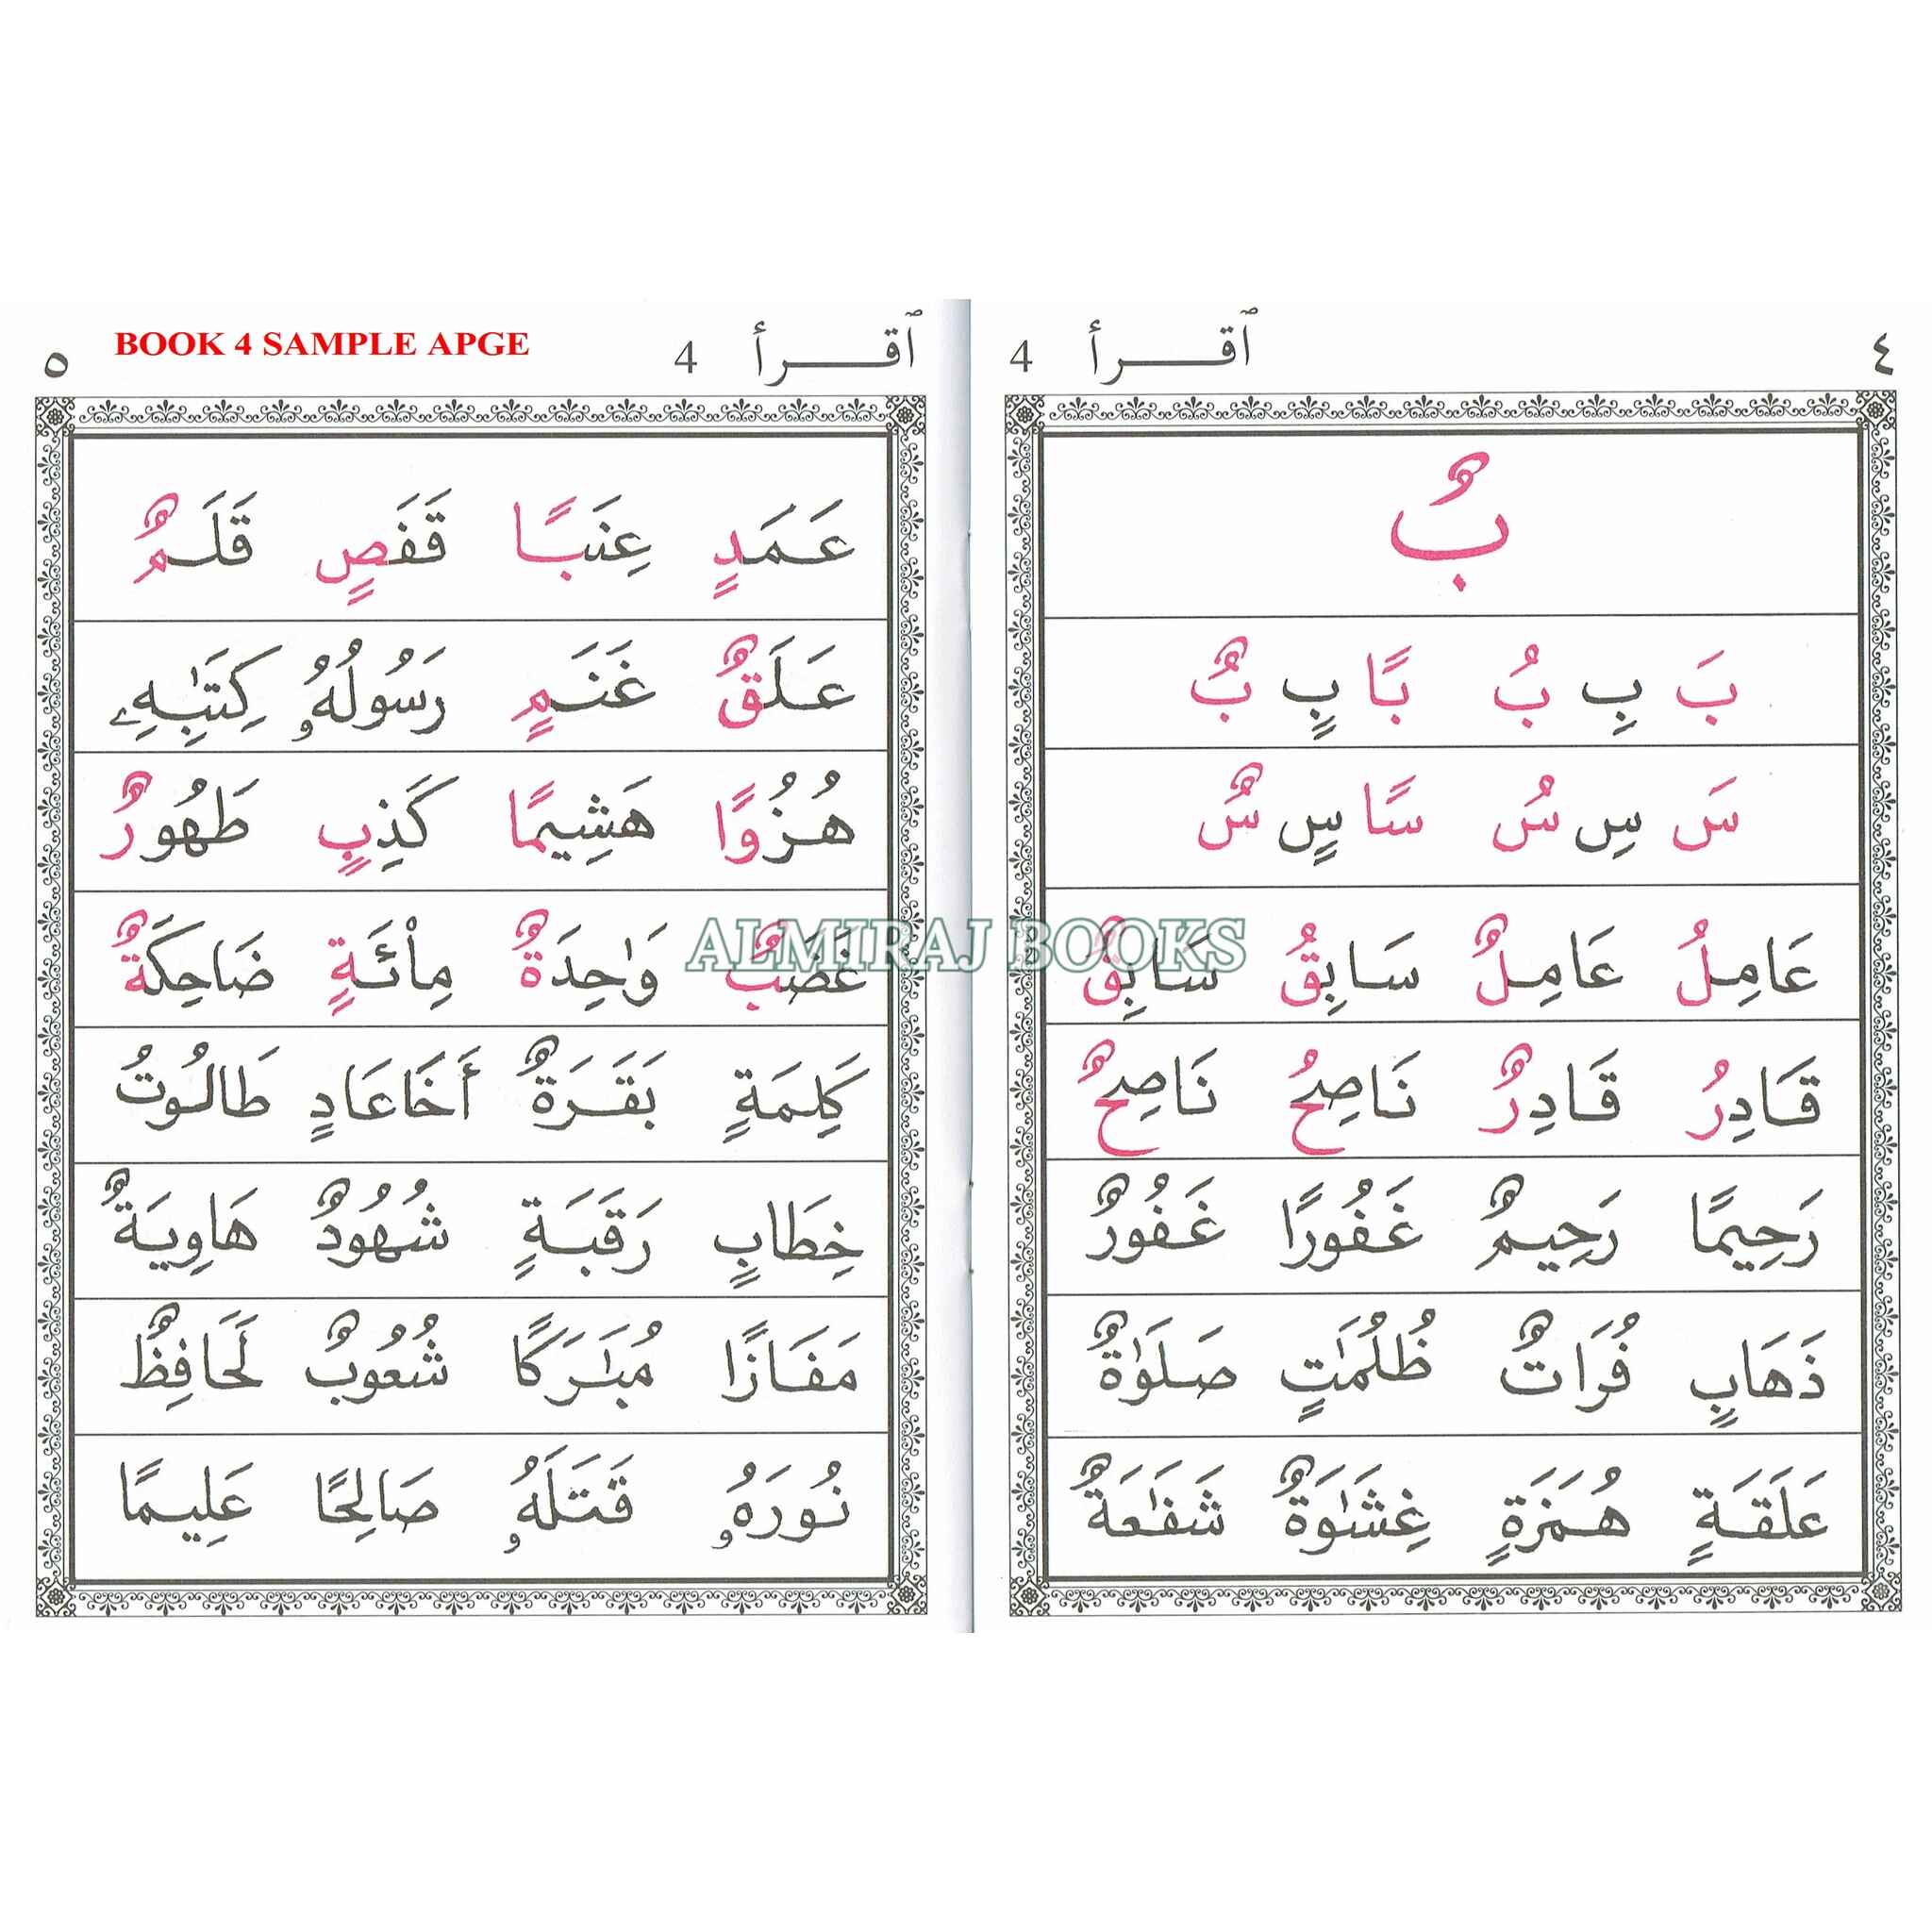 ٤ ٱقرأ 4
بٌ
بَ بِ بُ بًا بٍ بٌ
سَ سِ سُ سًا سٍ سٌ
عَامِلُ عَامِلٌ سَابِقُ سَابِقٌ
قَادِرُ قَادِرٌ نَاصِحُ نَاصِحٌ
رَحِيمًا رَحِيمٌ غَفُورًا غَفُورٌ
ذَهَابٍ فُرَاتٌ ظُلُمَٰتٍ صَلَوَٰةٌ
عَلَقَةٍ هُمَزَةٍ غِشَٰوَةٌ شَفَٰعَةٌ
ٱقرأ 4 BOOK 4 SAMPLE APGE ٥
عَمَدٍ عِنَبًا قَفَصٍ قَلَمٌ
عَلَقٌ غَنَمٍ رَسُولُهُۥ كِتَٰبِهِۦ
هُزُوًا هَشِيمًا كَذِبٍ طَهُورٌ
غَضَبٌ وَٰحِدَةٌ مِأْئَةٍ ضَاحِكَةٌ
كَلِمَةٍ بَقَرَةٌ أَخَاعَادٍ طَالُوتُ
خِطَابٍ رَقَبَةٍ شُهُودٌ هَاوِيَةٌ
مَفَازًا مُبَٰرَكًا شُعُوبٌ لَحَافِظٌ
نُورَهُۥ قَتَلَهُۥ صَالِحًا عَلِيمًا
ALMIRAJ BOOKS